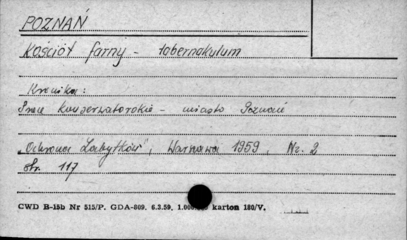 POZNAŃ
Kościół farny - tabernakulum
Kronika:
Prace konserwatorskie - miasto Poznań
"Ochrona Zabytków", Warszawa 1959, Nr. 2
str. 117
CWD B-15b Nr 515/P. GDA-809. 6.3.59. karton 180/V.